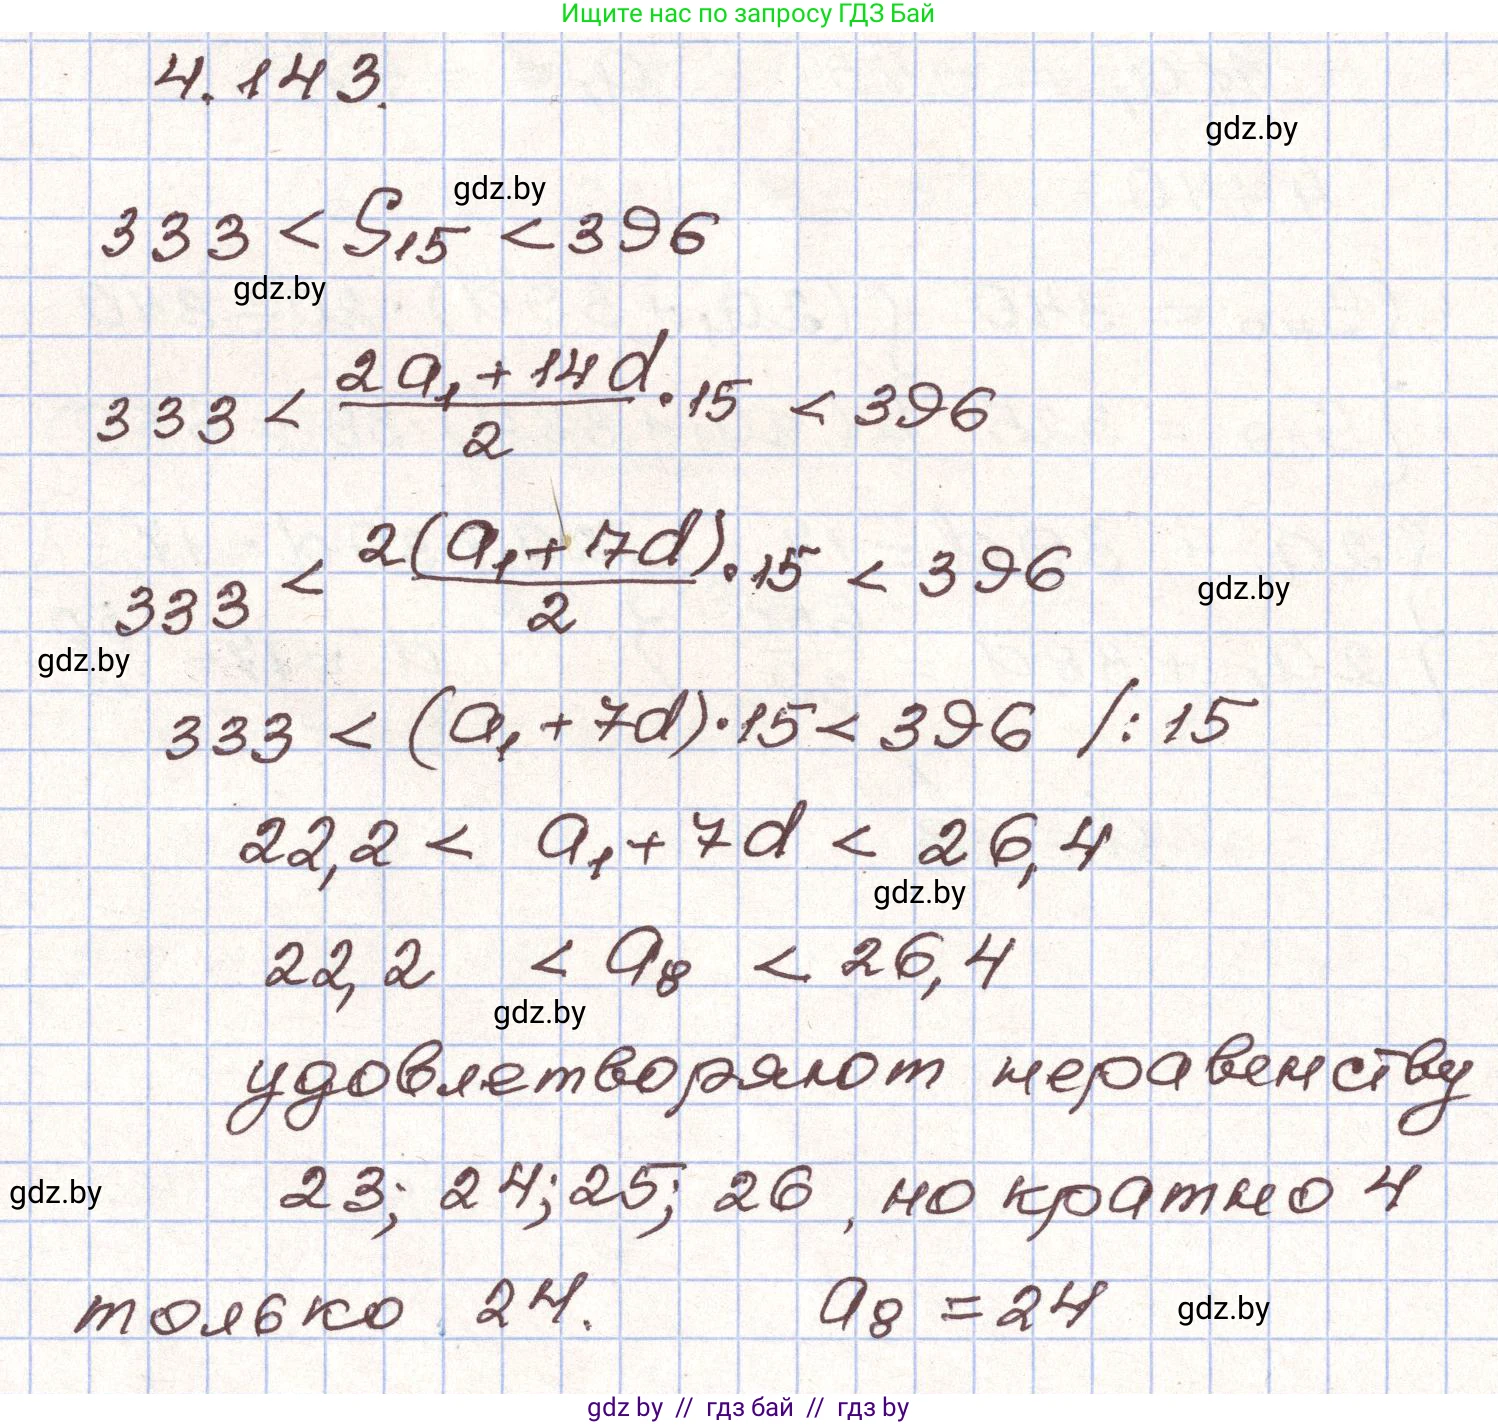 Ищите нас по запросу ГДЗ Бай
4.143.
gdz.by
gdz.by
333 < S₁₅ < 396
gdz.by
333 < (2a₁ + 14d)/2 · 15 < 396
333 < 2(a₁ + 7d)/2 · 15 < 396
gdz.by
gdz.by
333 < (a₁ + 7d) · 15 < 396 /: 15
22,2 < a₁ + 7d < 26,4
gdz.by
22,2 < a₈ < 26,4
gdz.by
удовлетворяют неравенству
gdz.by
23; 24; 25; 26, но кратно 4
только 24. a₈ = 24
gdz.by
gdz by // гдз бай // гдз by